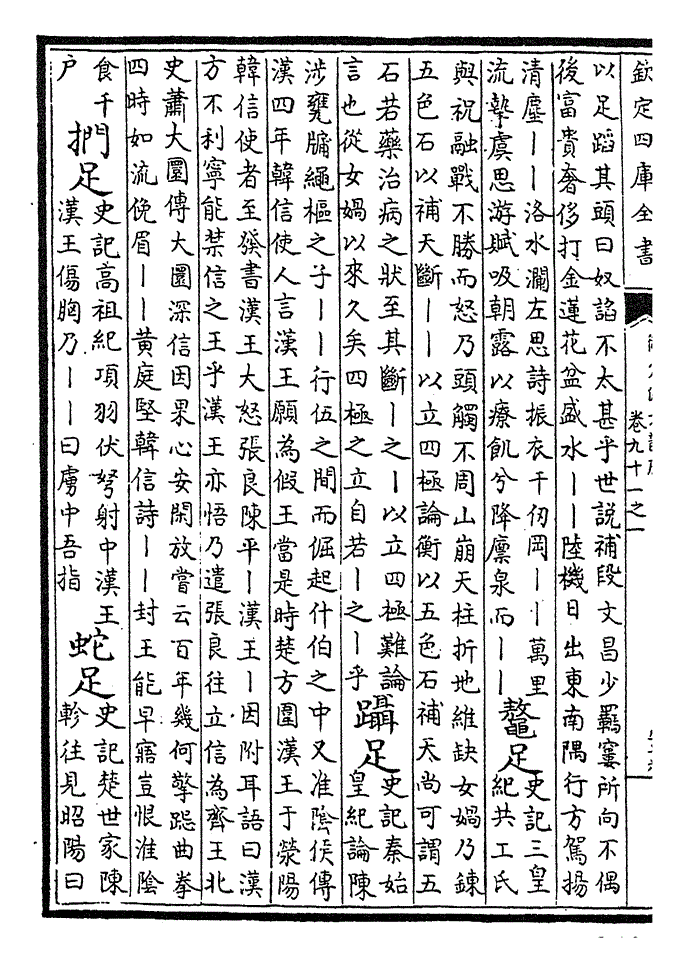 欽定四庫全書
卷九十一之一
以足蹈其頭曰奴諂不太甚乎世說補段文昌少羈窶所向不偶
後富貴奢侈打金蓮花盆盛水丨丨陸機日出東南隅行方駕揚
清塵丨丨洛水瀾左思詩振衣千仞岡丨丨萬里
流摯虞思游賦吸朝露以療飢兮降廩泉而丨丨
鼇足
史記三皇
紀共工氏
與祝融戰不勝而怒乃頭觸不周山崩天柱折地維缺女媧乃鍊
五色石以補天斷丨丨以立四極論衡以五色石補天尚可謂五
石若藥治病之狀至其斷丨之丨以立四極難論
言也從女媧以來久矣四極之立自若丨之丨乎
躡足
史記秦始
皇紀論陳
涉甕牖繩樞之子丨丨行伍之間而倔起什伯之中又淮陰侯傳
漢四年韓信使人言漢王願為假王當是時楚方圍漢王于滎陽
韓信使者至發書漢王大怒張良陳平丨漢王丨因附耳語曰漢
方不利寧能禁信之王乎漢王亦悟乃遣張良往立信為齊王北
史蕭大圜傳大圜深信因果心安閑放嘗云百年幾何擎跽曲拳
四時如流俛眉丨丨黃庭堅韓信詩丨丨封王能早寤豈恨淮陰
食千
户
捫足
史記高祖紀項羽伏弩射中漢王
漢王傷胸乃丨丨曰虜中吾指
蛇足
史記楚世家陳
軫往見昭陽曰